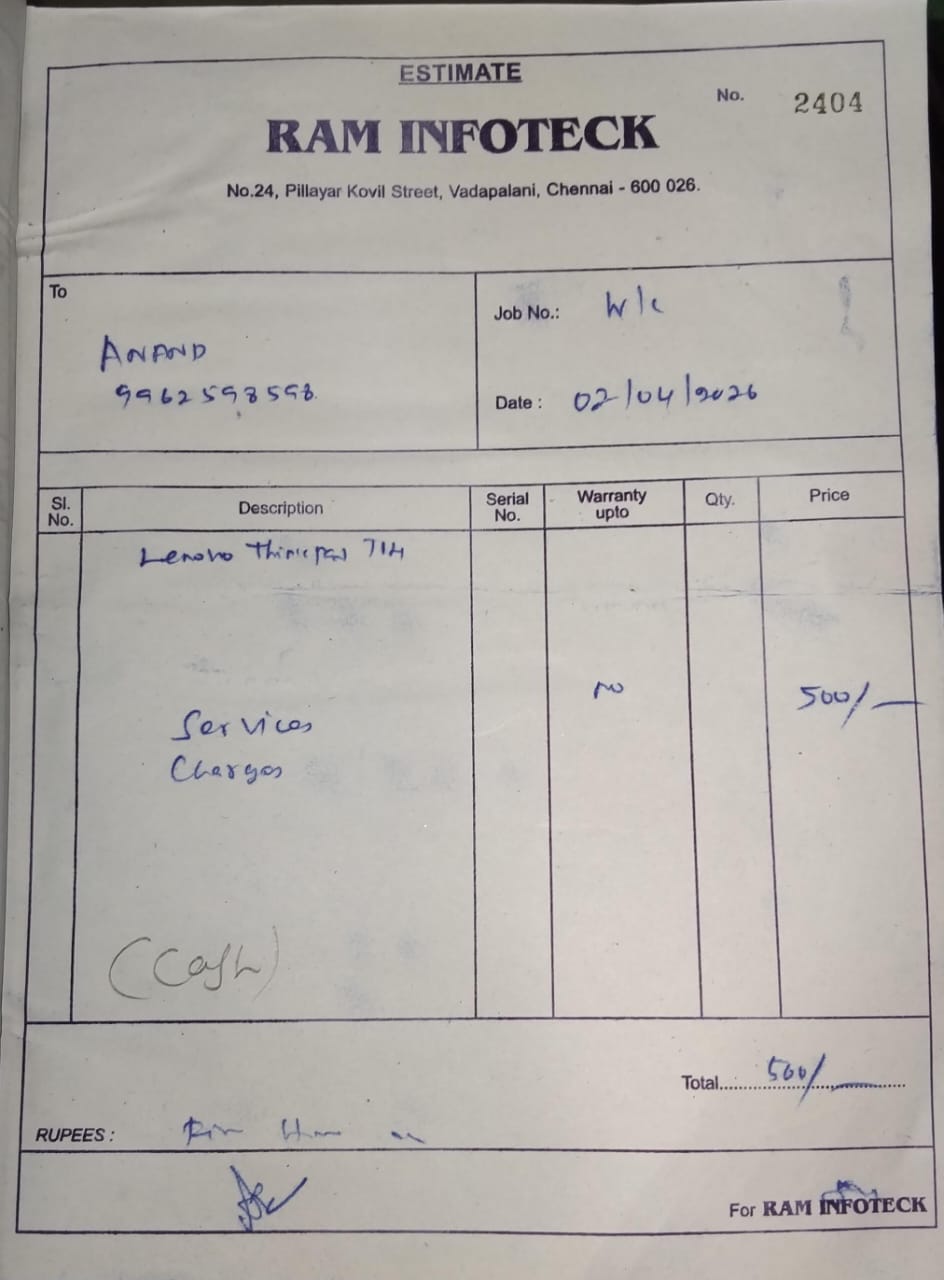 ESTIMATE
No. 2404
RAM INFOTECK
No.24, Pillayar Kovil Street, Vadapalani, Chennai - 600 026.
To
ANAND
9962598598
Job No.: W/c
Date : 02/04/2026
Sl. No. Description Serial No. Warranty upto Qty. Price
Lenovo Thinkpad T14
no 500/-
Services
Charges
(Cash)
Total 500/-
RUPEES :
For RAM INFOTECK